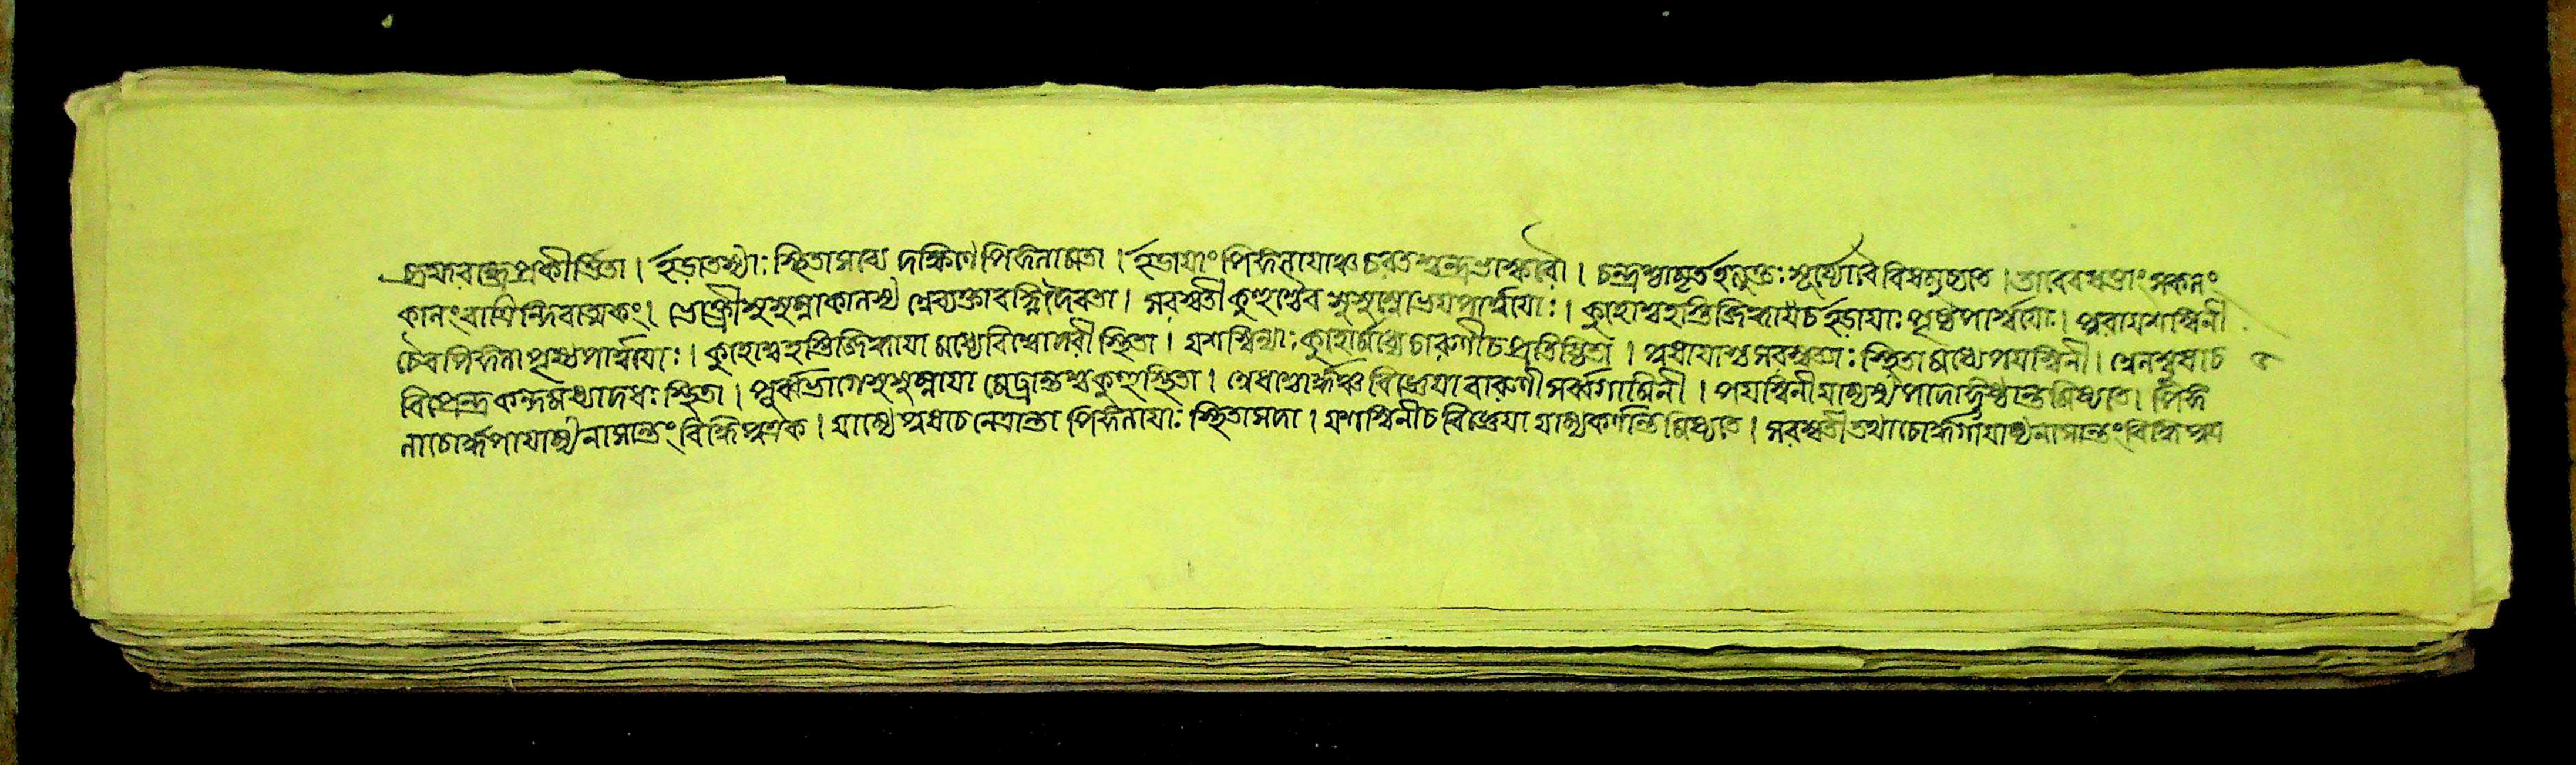 ব্রহ্মরন্ধ্রে প্রকীর্ত্তিতা । ইড়া তস্যাঃ স্থিতা সব্যে দক্ষিণে পিঙ্গলা মতা । ইড়ায়াং পিঙ্গলায়াঞ্চ চরতশ্চন্দ্রভাস্করৌ । চন্দ্রস্তামৃতইত্যুক্তঃ সূর্য্যো বৈ বিষমুচ্যতে । তাবেবধত্তাং সকলং
কালং রাত্রিন্দিবাত্মকং । ভোক্ত্রী সুষুম্না কালস্য শ্বেব্যক্তা বহ্নিদৈবতা । সরস্বতী কুহুশ্চৈব সুষুম্নোভয়পার্শ্বয়োঃ । কুহোশ্চ হস্তিজিহ্বায়াং চ ইড়ায়াঃ পৃষ্ঠপার্শ্বয়োঃ । পূষা যশস্বিনী
চৈব পিঙ্গলা পৃষ্ঠপার্শ্বয়োঃ । কুহোশ্চ হস্তিজিহ্বায়া মধ্যে বিশ্বোদরী স্থিতা । যশস্বিন্যাঃ কুহোর্মধ্যে চারুণী চ প্রতিষ্ঠিতা । পূষায়াশ্চ সরস্বত্যাঃ স্থিতা মধ্যে পয়স্বিনী ।
বিপ্রেন্দ্র কন্দমধ্যাদধঃ স্থিতা । পূর্ব্বভাগে সুষুম্নায়া মেঢ্রান্তশ্চ কুহু স্থিতা । অধশ্চোর্দ্ধঞ্চ বিজ্ঞেয়া বারুণী সর্ব্বগামিনী । পয়স্বিনী যাম্যস্য পাদাঙ্গুষ্ঠান্তমিষ্যতে । পিঙ্গ
লা চোর্দ্ধগা যাম্যে নাসান্তং বিদ্ধি সত্তম । যাম্যে পূষা চ নেত্রান্তা পিঙ্গলায়াঃ স্থিতা সদা । যশস্বিনী চ বিজ্ঞেয়া যাম্যকর্ণান্তমিষ্যতে । সরস্বতী তথা চোর্দ্ধগা